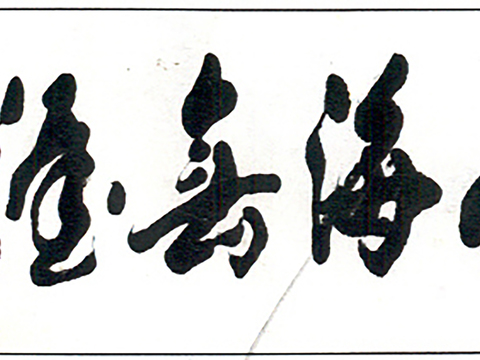 海無涯